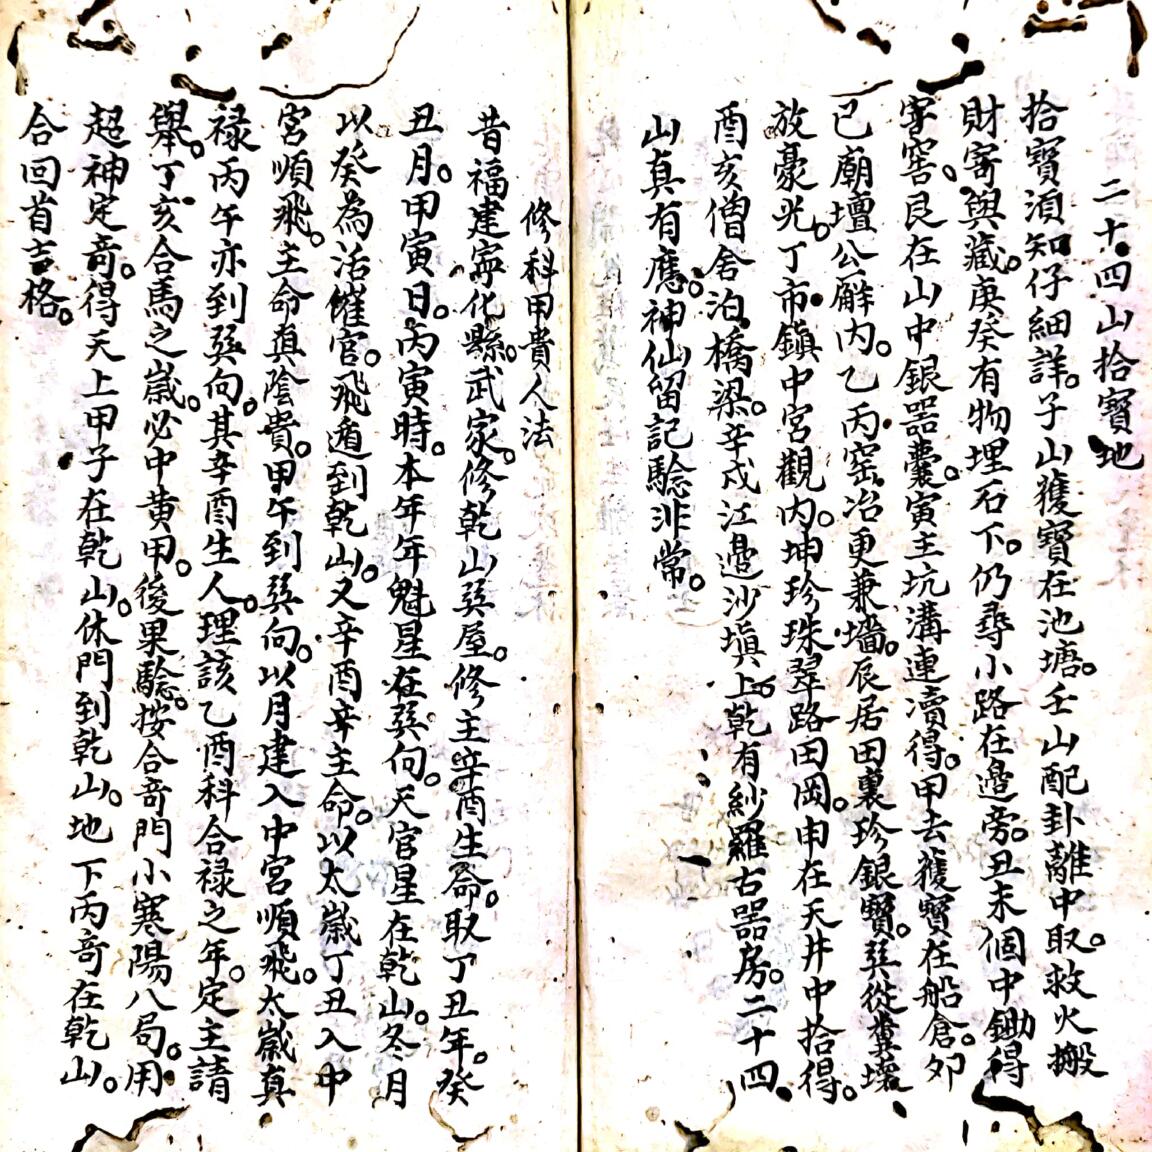 二十四山拾寶地
拾寶須知仔細詳。子山獲寶在池塘。壬山配卦離中取。救火搬
財寄與藏。庚癸有物埋石下。仍尋小路在邉旁。丑未個中鋤得
窖。艮在山中銀器囊。寅主坑溝連瀆得。甲去獲寶在船倉。夘
巳廟壇公廨内。乙丙窑冶更兼墻。辰居田裏珍銀寶。巽從糞壤
放豪光。丁市鎮中宮觀内。坤珍珠翠路田岡。申在天井中拾得。
酉亥僧舍泊橋梁。辛戍江邉沙塡上。乾有紗羅古器房。二十四
山真有應。神仙留記驗非常。
修科甲貴人法
昔福建寧化縣。武家。修乾山巽屋。修主辛酉生命。取丁丑年。癸
丑月。甲寅日。丙寅時。本年年魁星在巽向。天官星在乾山。冬月
以癸為活催官。飛遁到乾山。又辛酉辛主命。以太嵗丁丑入中
宮順飛。主命真陰貴。甲午到巽向。以月建入中宮順飛。太嵗真
禄丙午亦到巽向。其辛酉生人。理該乙酉科合禄之年。定主請
舉。丁亥合馬之嵗。必中黄甲。後果驗。按合竒門小寒陽八局。用
超神定竒。得天上甲子在乾山。休門到乾山。地下丙竒在乾山。
合回首吉格。